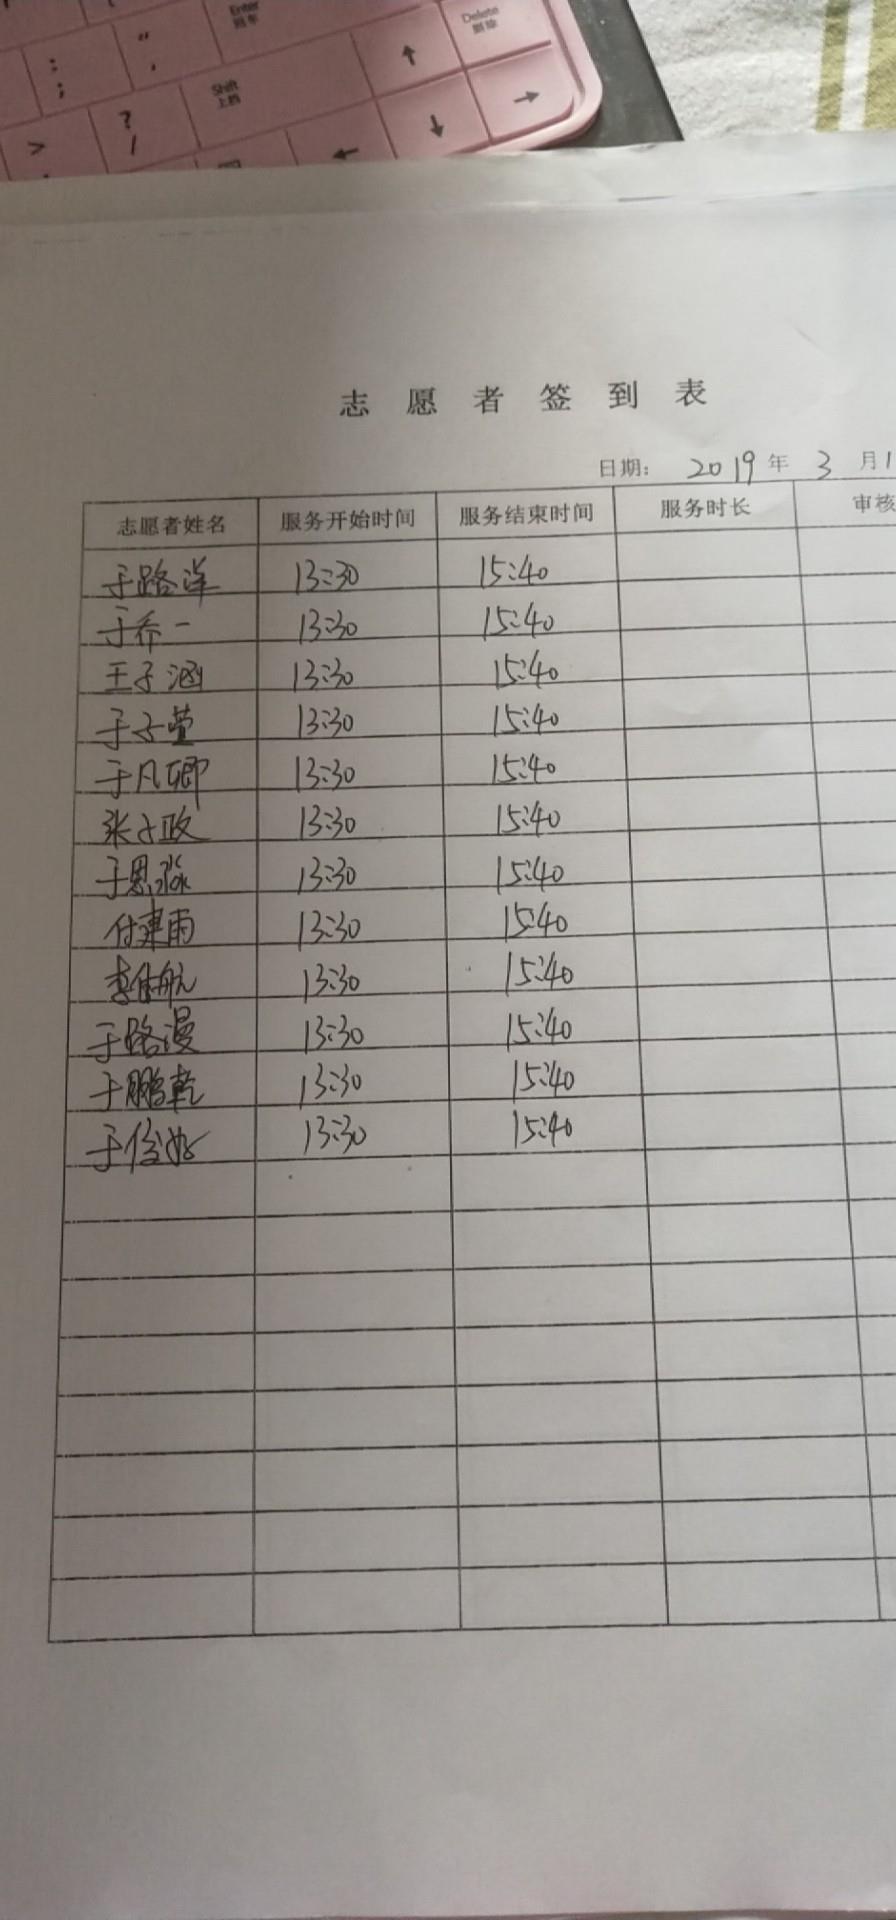 Enter
回车
Delete
删除
: "
; ,
Shift
上档
↑
> ? 
/
← ↓ →
志愿者签到表
日期: 2019年 3月1
志愿者姓名 服务开始时间 服务结束时间 服务时长 审核
于路洋 13:30 15:40
于乔一 13:30 15:40
王子涵 13:30 15:40
于子萱 13:30 15:40
于凡卿 13:30 15:40
张子政 13:30 15:40
于恩淼 13:30 15:40
付建雨 13:30 15:40
李佳航 13:30 15:40
于路漫 13:30 15:40
于鹏乾 13:30 15:40
于俊 13:30 15:40